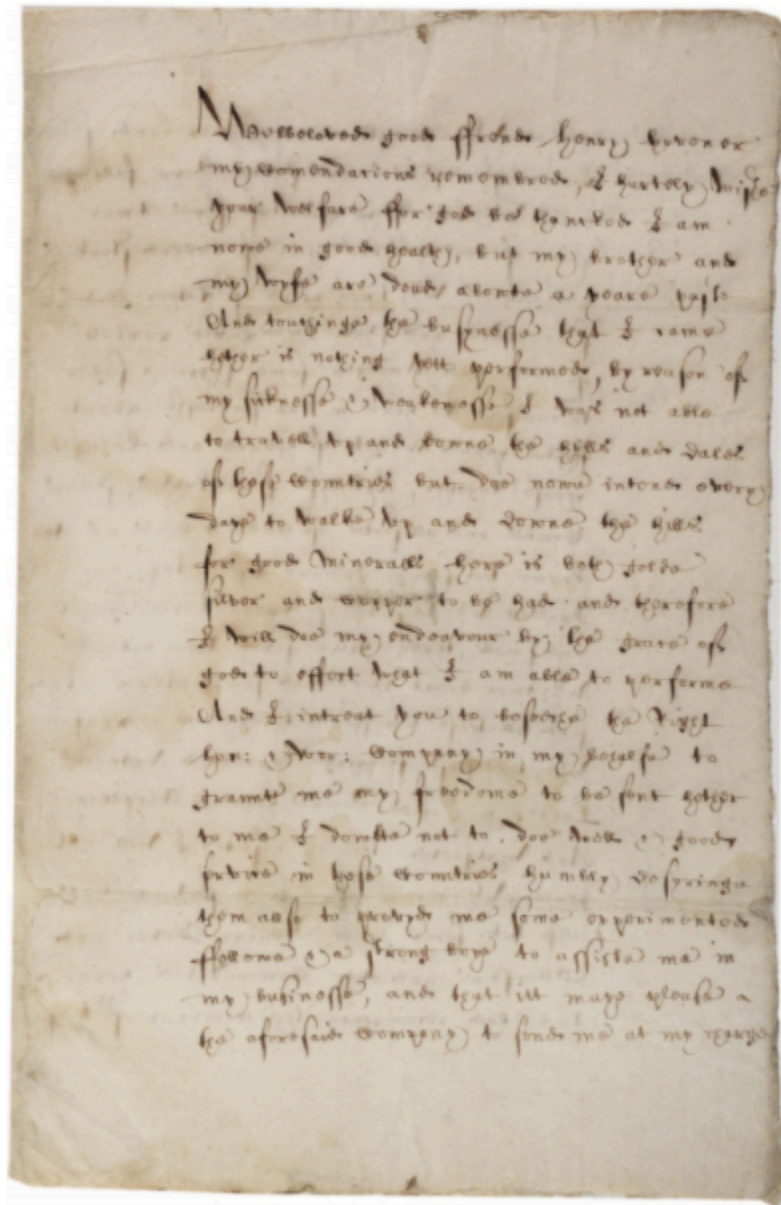 Welbeloved good ffrende Henry
my comendations remembred, I hartely wishe
your welfare ffor god bee thancked I am
nowe in good healthe, but my brother and
my wyfe are dead aboute a yeare past
And touchinge the busynesse that I came
hether is nothing yett performed, by reason of
my sicknesse & weakenesse I was not able
to travell up and downe the hills and dales
of these countries but doe nowe intend every
daye to walke up and downe the hills
for good Mineralls here is both golde
silver and copper to be had and therefore
I will doe my endeavour by the grace of
god to effect what I am able to performe
And I intreat you to beseeche the Right
hon: & wor: Company in my behalfe to
graunte me my freedome to be sent hether
to me I dowbte not to doe well & good
service in these countries humbly desyringe
them also to provyde me some experimented
ffellowe & a strong boye to assiste me in
my businesse, and that itt maye please
the aforesaid Company to send me at my charge